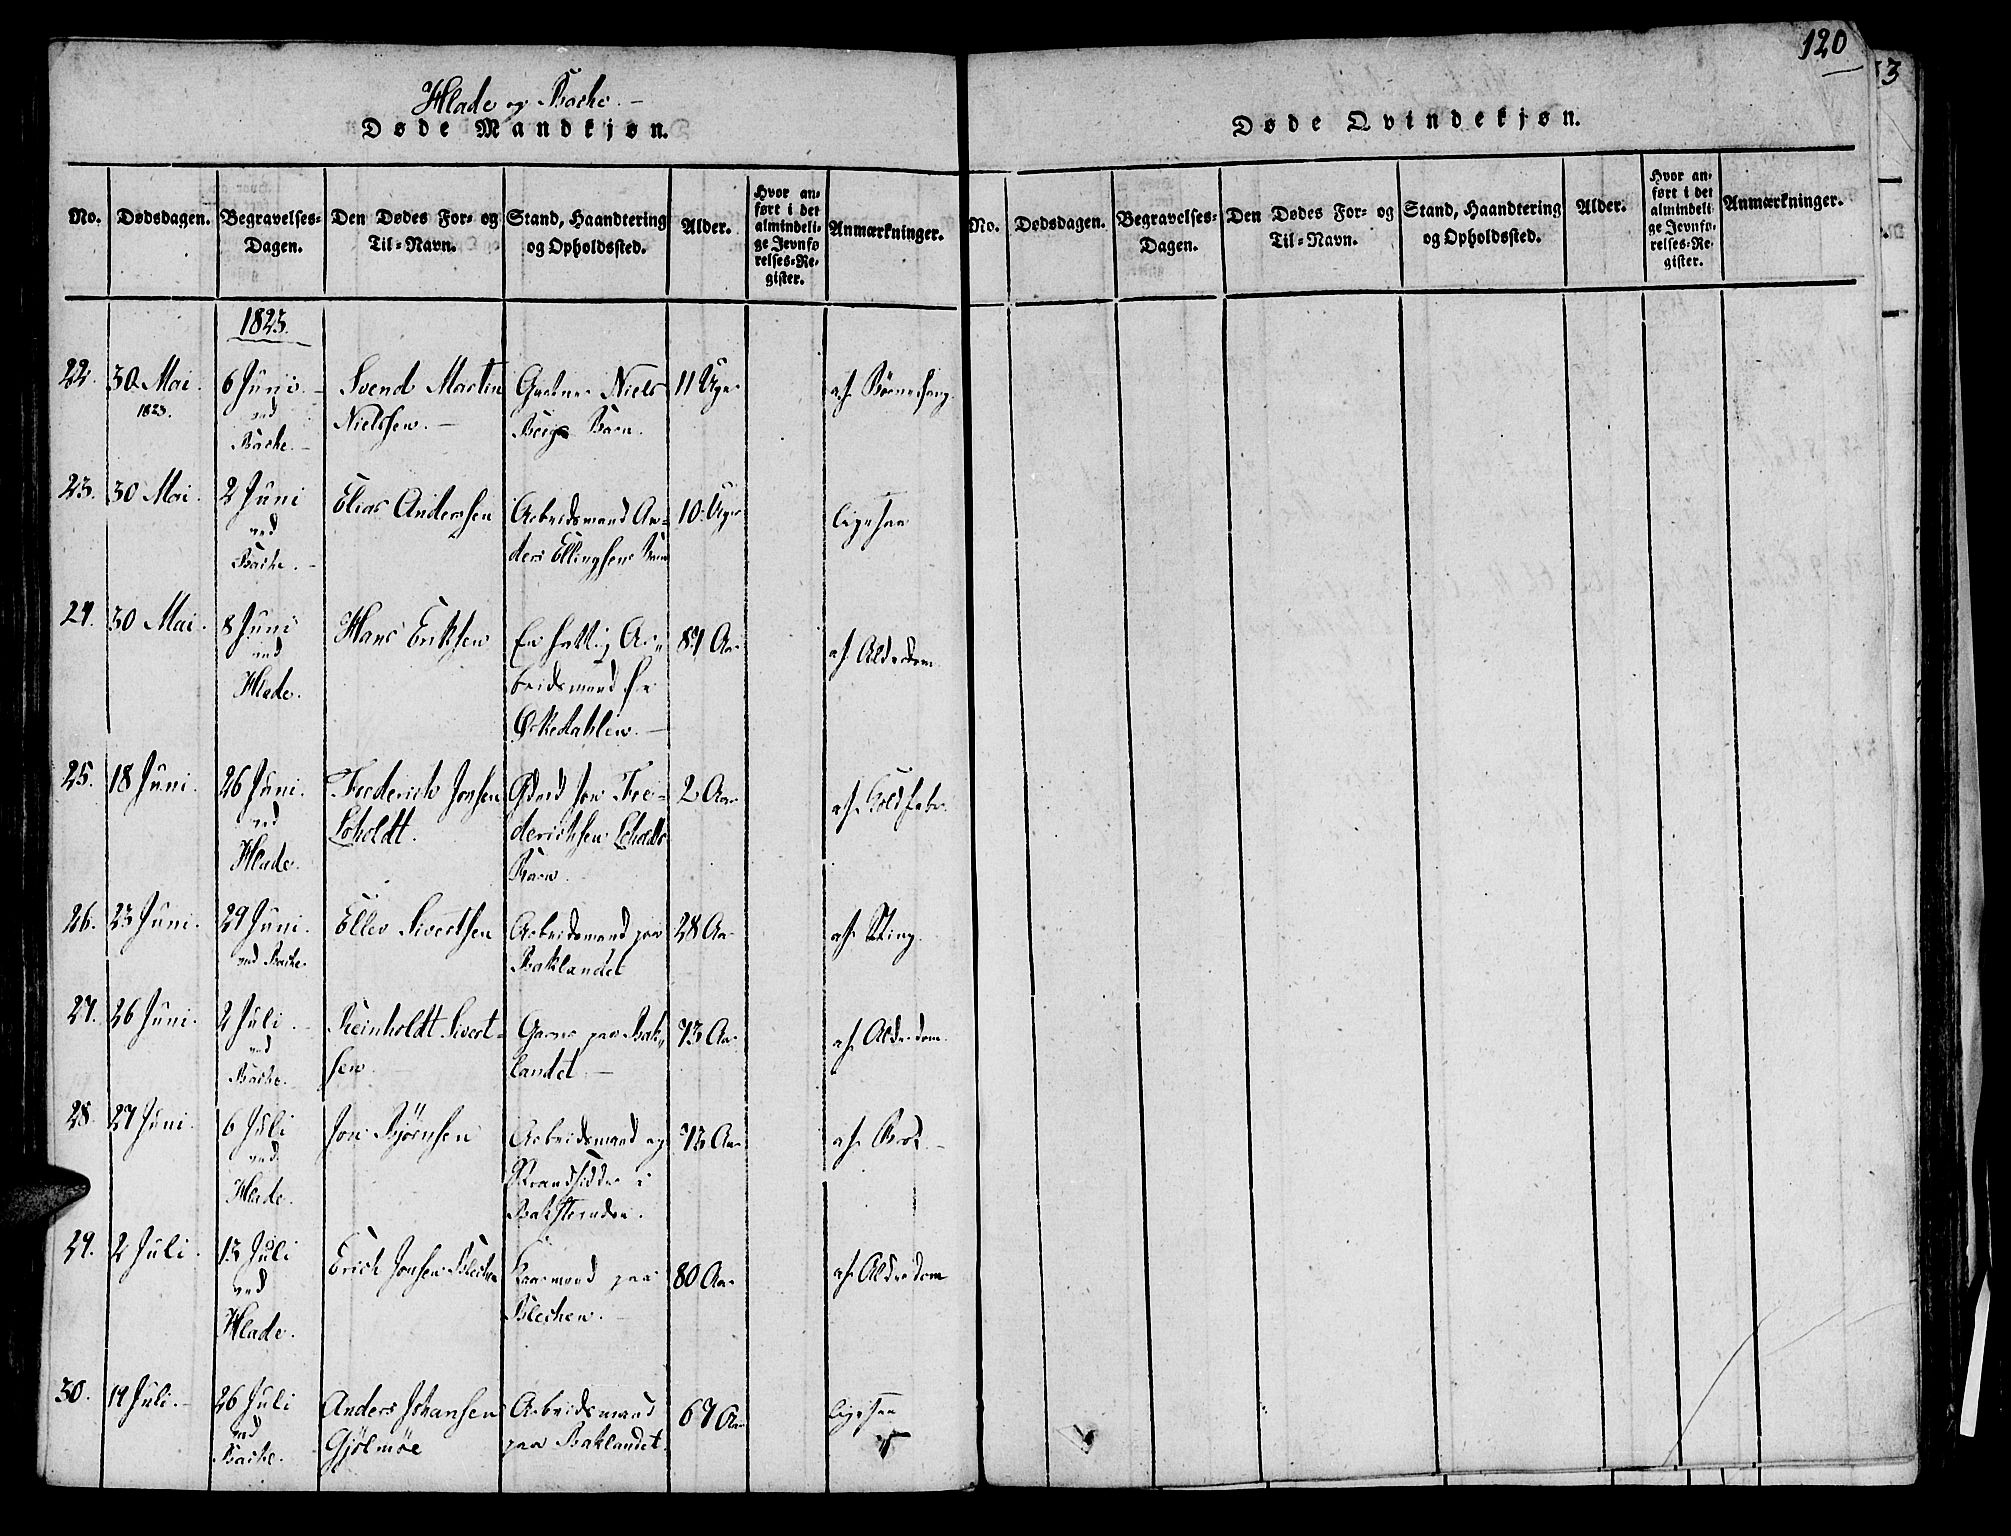 120
3
Hlade og Bache. –
Døde Mandkjøn.
No. Dødsdagen. Begravelses-Dagen. Den Dødes For- og Til-Navn. Stand, Haandtering og Opholdssted. Alder. Hvor anført i det almindelige Jevnførelses-Register. Anmærkninger.
1823.
22. 30 Mai. 1823. 6 Juni. – ved Bache. – Svend Martin Nielssen. – Niels Bergs Barn. 11 Uger af
23. 30 Mai. 2 Juni ved Bache. – Elias Anderssen Arbeidsmand Anders Ellingsens Barn 10 Uger ligesaa
24. 30 Mai. 8 Juni ved Hlade. Hans Eriksen En fattig Arbeidsmand fra Ørkedahlen. – Aar af Alderdom
25. 18 Juni. 26 Juni. ved Hlade. Frederich Jonsen Loholdt. Jon Frederichsen Loholdts Barn. 2 Aar af
26. 23 Juni. 29 Juni. ved Bache. Ellev Sivertsen Arbeidsmand paa Baklandet 28 Aar af Sting.
27. 26 Juni. 2 Juli. – ved Bache. Reinholdt Sivertsen – Garver paa Baklandet. – 73 Aar af Alderdom.
28. 27 Juni. 6 Juli ved Hlade. Jon Bjørnsen Arbeidsmand og Strandsidder i 73 Aar af
29. 2 Juli. 13 Juli ved Hlade. Erich Jonsen Blechen Kaarmand paa Blechen. – 80 Aar af Alderdom
30. 14 Juli. – 26 Juli ved Bache. Anders Johansen Gjølmøe Arbeidsmand paa Baklandet. 67 Aar ligesaa
Døde Qvindekjøn.
No. Dødsdagen. Begravelses-Dagen. Den Dødes For- og Til-Navn. Stand, Haandtering og Opholdssted. Alder. Hvor anført i det almindelige Jevnførelses-Register. Anmærkninger.